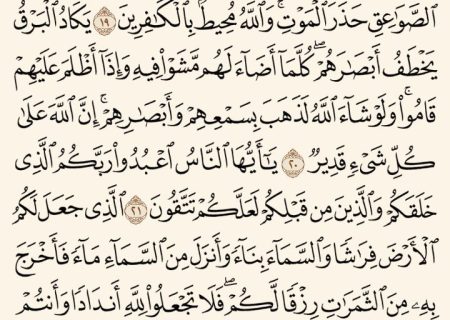 ٱلصَّوَٰعِقِ حَذَرَ ٱلْمَوْتِ ۚ وَٱللَّهُ مُحِيطٌۢ بِٱلْكَٰفِرِينَ ١٩ يَكَادُ ٱلْبَرْقُ
يَخْطَفُ أَبْصَٰرَهُمْ ۖ كُلَّمَآ أَضَآءَ لَهُم مَّشَوْا۟ فِيهِ وَإِذَآ أَظْلَمَ عَلَيْهِمْ
قَامُوا۟ ۚ وَلَوْ شَآءَ ٱللَّهُ لَذَهَبَ بِسَمْعِهِمْ وَأَبْصَٰرِهِمْ ۚ إِنَّ ٱللَّهَ عَلَىٰ
كُلِّ شَىْءٍ قَدِيرٌ ٢٠ يَٰٓأَيُّهَا ٱلنَّاسُ ٱعْبُدُوا۟ رَبَّكُمُ ٱلَّذِى
خَلَقَكُمْ وَٱلَّذِينَ مِن قَبْلِكُمْ لَعَلَّكُمْ تَتَّقُونَ ٢١ ٱلَّذِى جَعَلَ لَكُمُ
ٱلْأَرْضَ فِرَٰشًا وَٱلسَّمَآءَ بِنَآءً وَأَنزَلَ مِنَ ٱلسَّمَآءِ مَآءً فَأَخْرَجَ
بِهِۦ مِنَ ٱلثَّمَرَٰتِ رِزْقًا لَّكُمْ ۖ فَلَا تَجْعَلُوا۟ لِلَّهِ أَندَادًا وَأَنتُمْ